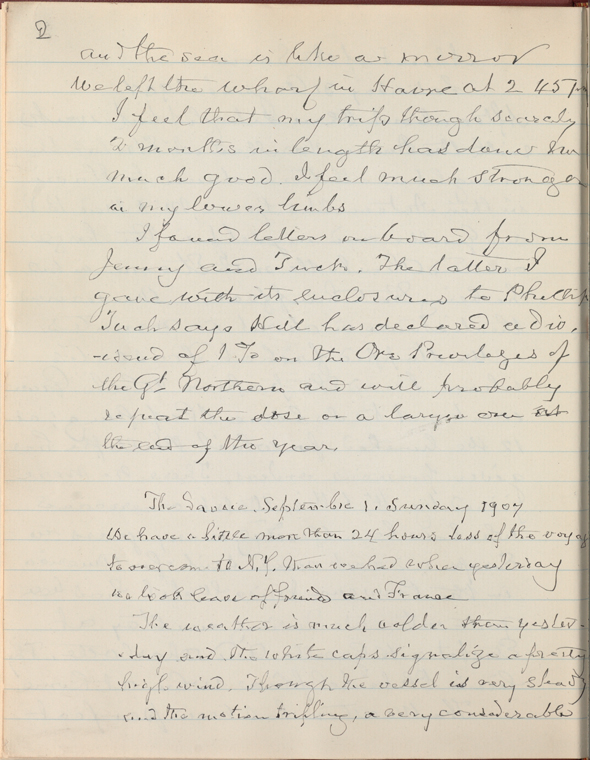 2
and the sea is like a mirror
We left the wharf in Havre at 2 45
I feel that my trip though scarcely
2 months in length has done me
much good. I feel much stronger
in my lower limbs
I found letters on board from
Jenny and Tuck. The latter I
gave with its enclosures to Phillip
Tuck says Hill has declared a div.
-idend of 1 % on the Ore Privileges of
the Gt Northern and will probably
repeat the dose or a larger one at
the end of the year.
The Savoie. September 1. Sunday 1907
We have a little more than 24 hours less of the voyage
to overcome to N.Y. than we had when yesterday
we took leave of friends and France
The weather is much colder than yester-
-day and the white caps signalize a pretty
high wind. Though the vessel is very steady
and the motion trifling, a very considerable